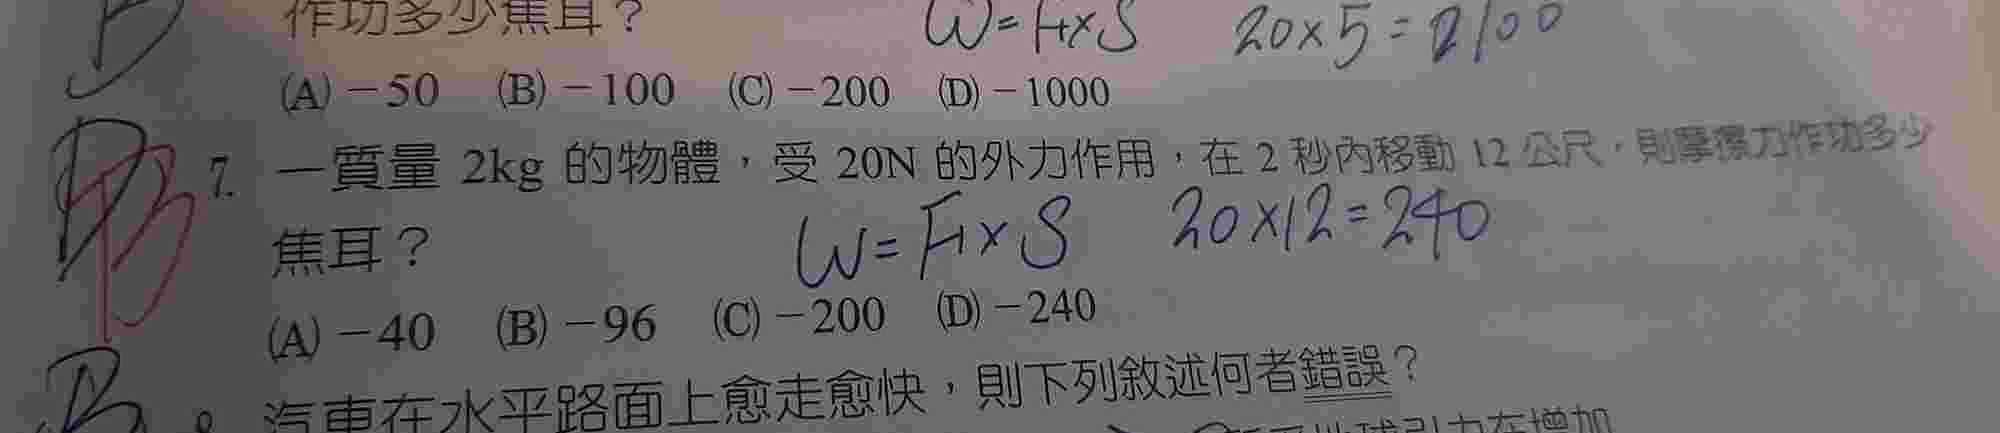 作功多少焦耳？ W=F×S 20×5=2100
(A)－50 (B)－100 (C)－200 (D)－1000
7. 一質量 2kg 的物體，受 20N 的外力作用，在 2 秒內移動 12 公尺，則摩擦力作功多少
焦耳？ W=F×S 20×12=240
(A)－40 (B)－96 (C)－200 (D)－240
汽車在水平路面上愈走愈快，則下列敘述何者錯誤？
地球引力在增加